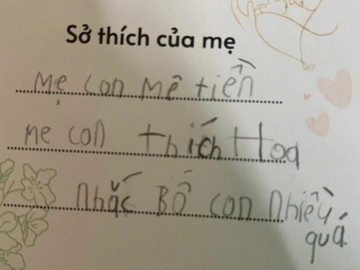 Sở thích của mẹ
Mẹ con mê tiền
mẹ con thích Hoa
nhắc Bố con nhiều
quá